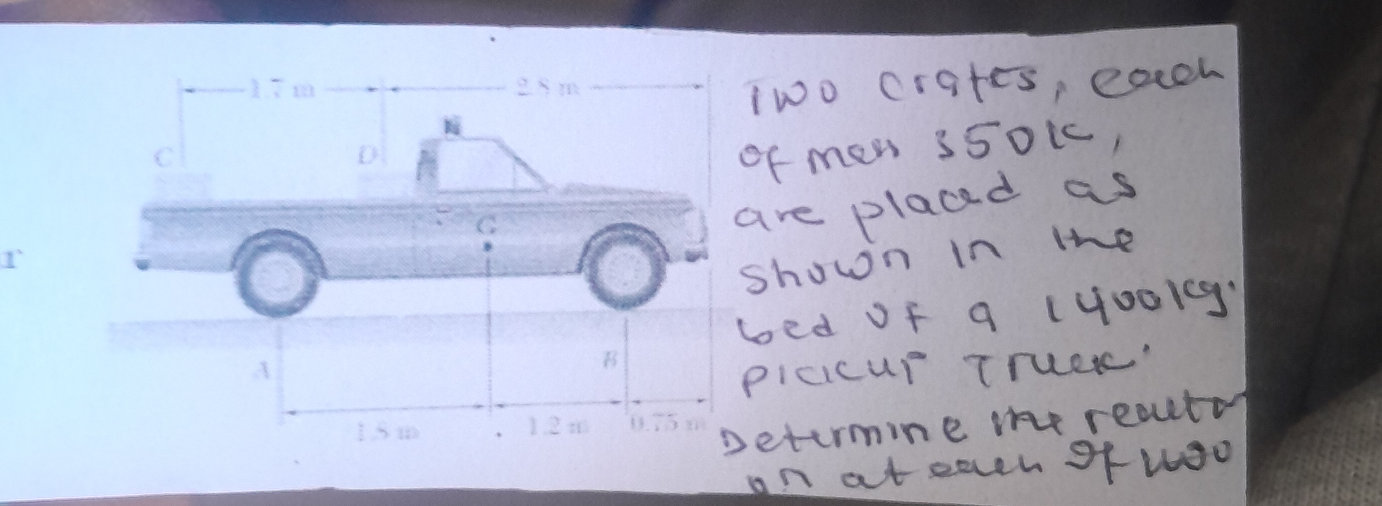 r
1.7 m
2.8 m
C
D
G
A
B
1.8 m
1.2 m
0.75 m
Two crates, each
of mass 350K,
are placed as
shown in the
bed of a 1400kg.
pickup Truck.
Determine the
at each of